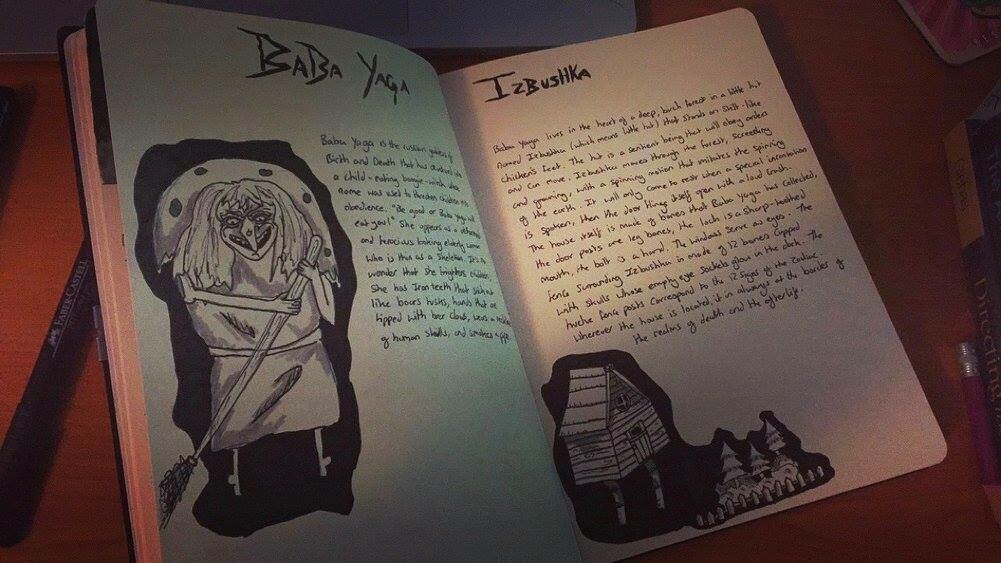 BABA YAGA
Baba Yaga is the russian goddess of
Birth and Death that has devolved into
a child-eating, boogie-witch whos
name was used to threaten children into
obedience. "Be good or Baba Yaga will
eat you!" She appears as a
and ferocious looking elderly
who is thin as a skeleton. It's no
wonder that she frightens children.
She has Iron teeth that
like boars tusks, hands that are
tipped with bear claws, wears a
of human skulls, and smokes a pipe.
IZBUSHKA
Baba Yaga lives in the heart of a deep, birch forest in a little hut
named Izbushka (which means little hut) that stands on stilt-like
chickens feet. The hut is a sentient being that will obey orders
and can move. Izbushka moves through the forest, screeching
and groaning, with a spinning motion that imitates the spinning
of the earth. It will only come to rest when a special incantation
is spoken, then the door flings itself open with a loud crash.
The house itself is made of bones that Baba Yaga has collected,
the door posts are leg bones, the lock is a sharp-toothed
mouth, the bolt is a hand. The windows serve as eyes. The
fence surrounding Izbushka is made of 12 bones tipped
with skulls whose empty eye sockets glow in the dark. The
twelve fence posts correspond to the 12 signs of the Zodiac.
Wherever the house is located, it is always at the border of
the realms of death and the afterlife.
FABER-CASTELL
Directing